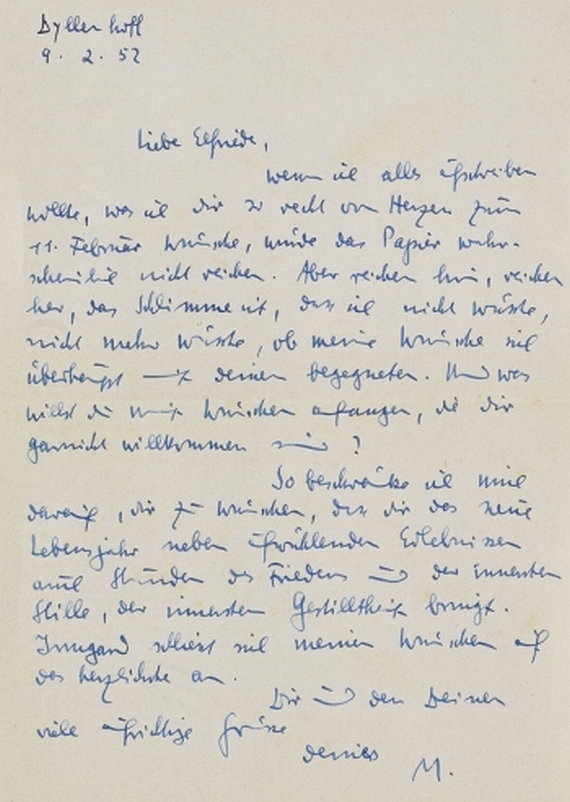 Dyllenhoff
9. 2. 52
Liebe Elfriede,
wenn ich alles aufschreiben
wollte, was ich dir so recht von Herzen zum
11. Februar wünsche, würde das Papier wahr-
scheinlich nicht reichen. Aber reichen hin, reichen
her, das Schlimme ist, dass ich nicht wüsste,
nicht mehr wüsste, ob meine Wünsche sich
überhaupt mit deinen begegneten. Und was
willst du mit Wünschen anfangen, die dir
garnicht willkommen sind?
So beschränke ich mich
darauf, dir zu wünschen, dass dir das neue
Lebensjahr neben aufwühlenden Erlebnissen
auch Stunden des Friedens und der innersten
Stille, der innersten Gestilltheit bringt.
Irmgard schliesst sich meinen Wünschen auf
das herzlichste an.
Dir und den Deinen
viele aufrichtige Grüsse
deines
M.